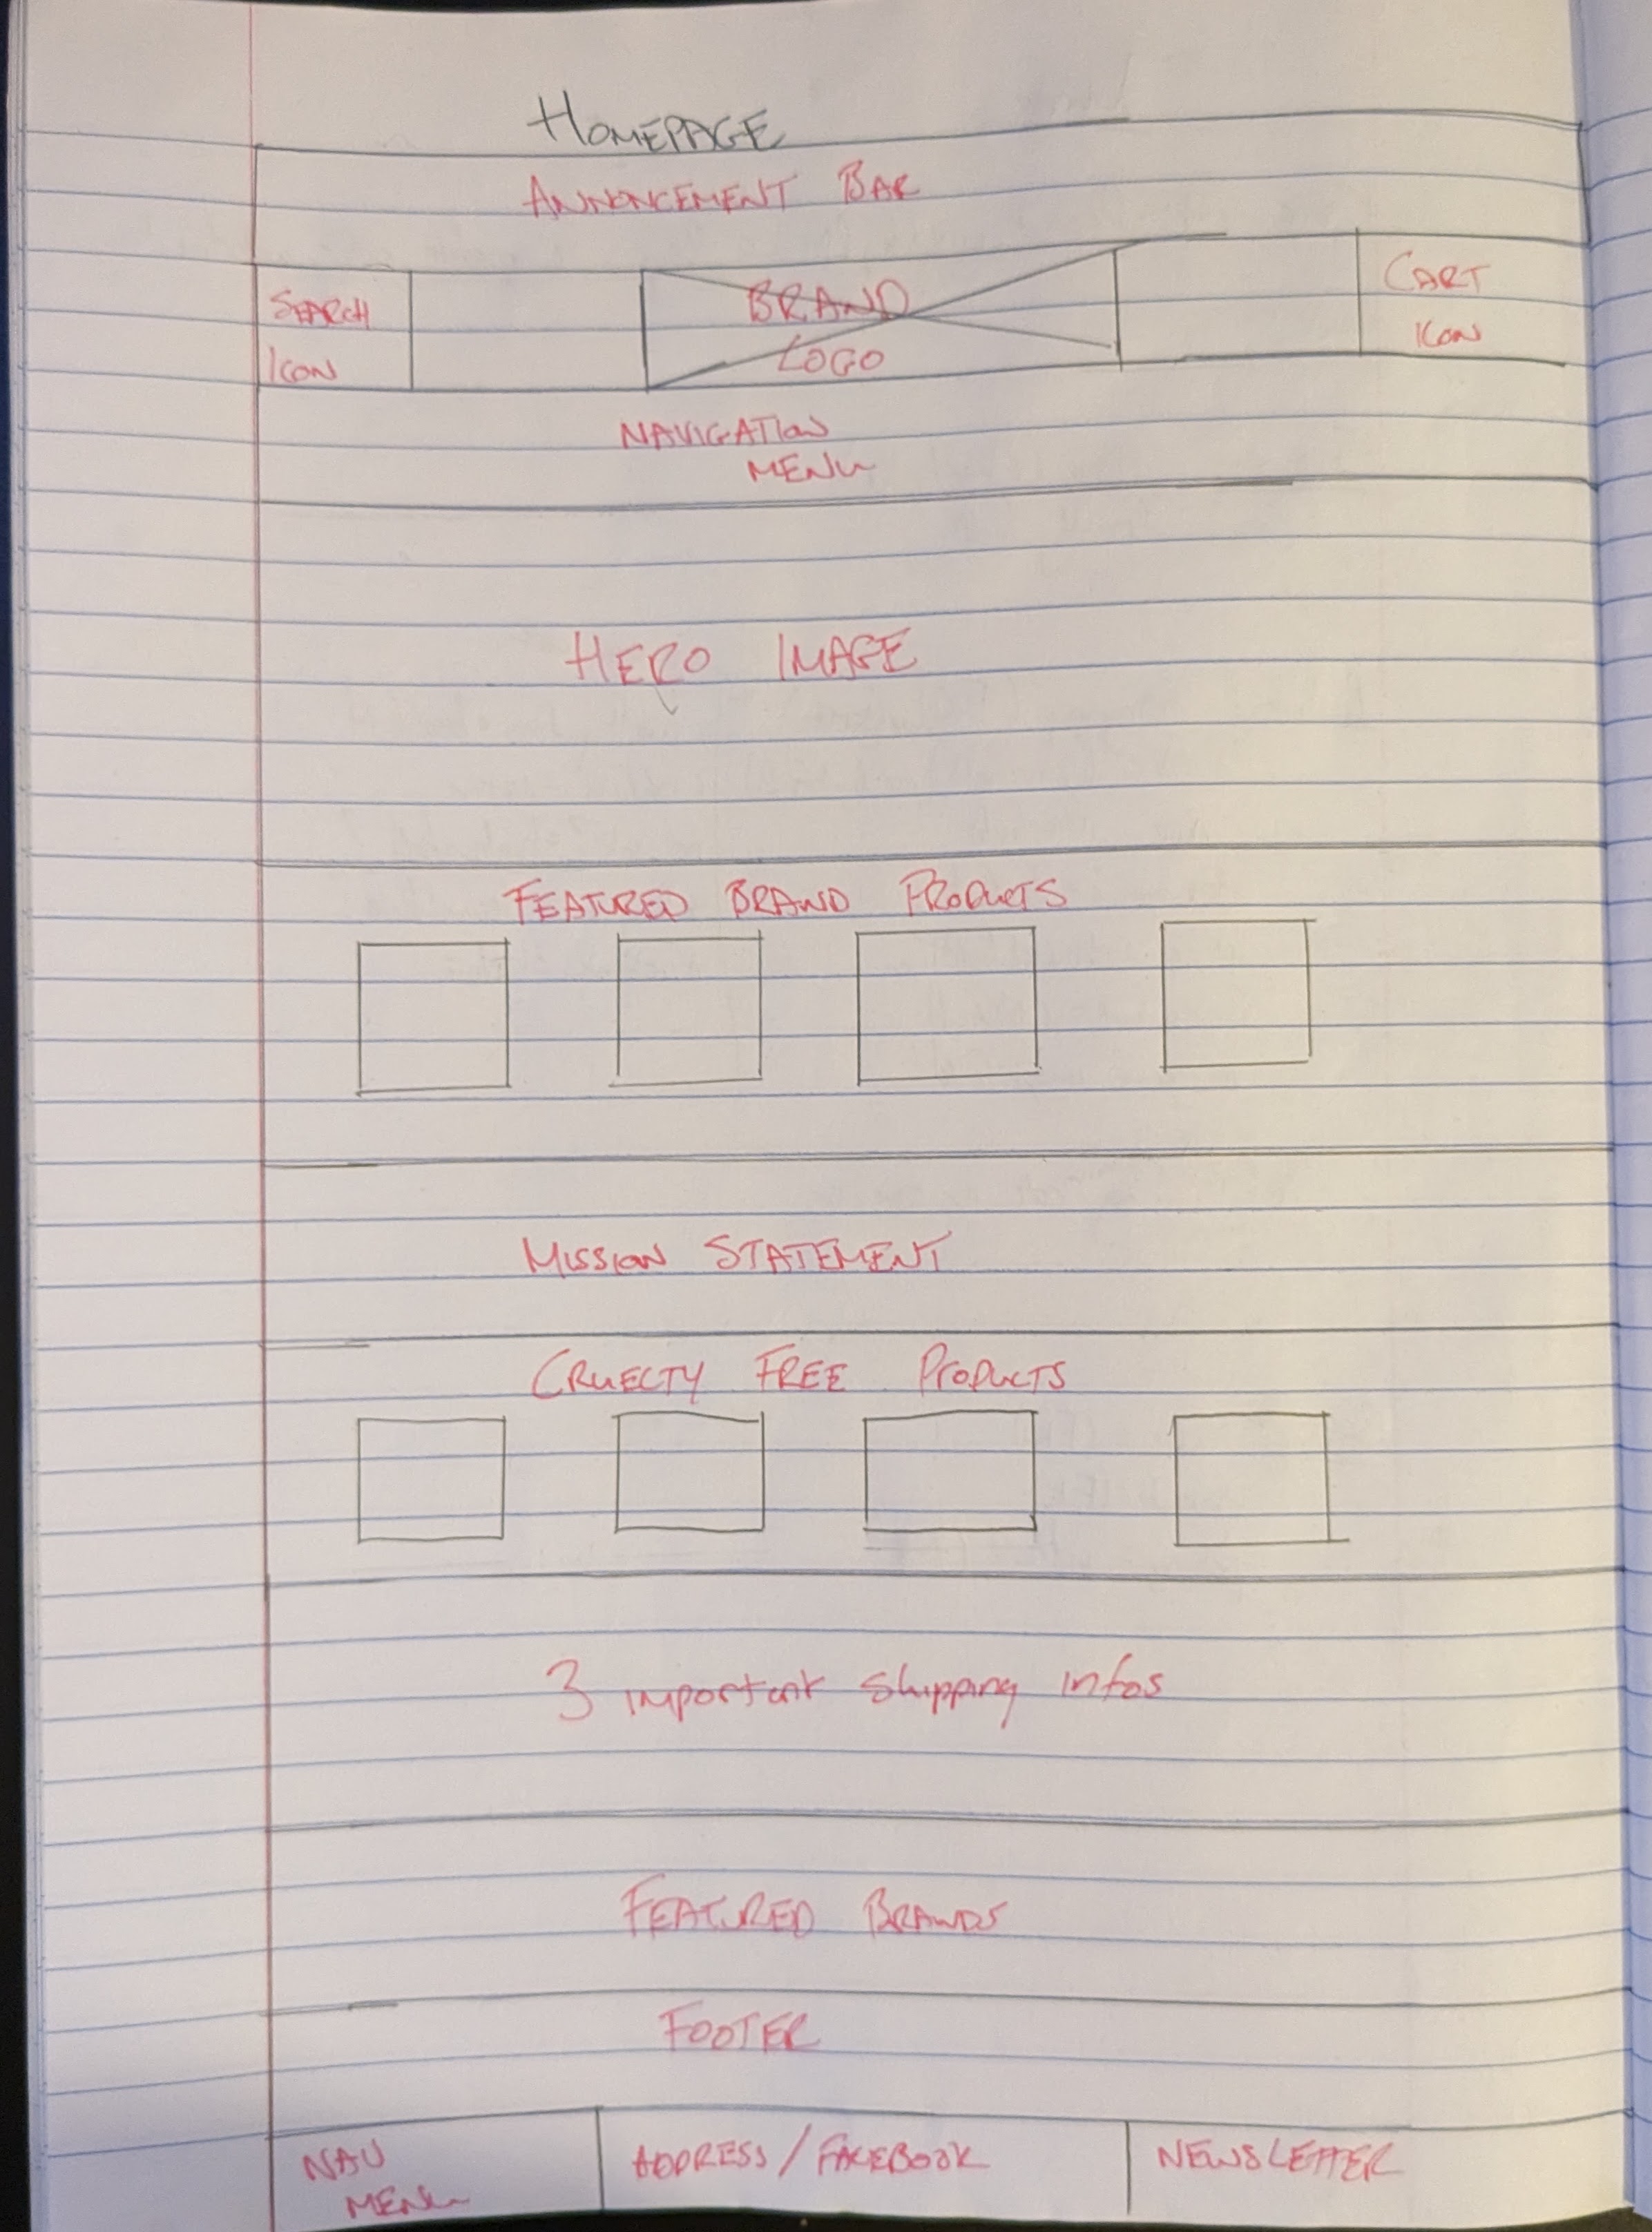 HOMEPAGE
ANNONCEMENT BAR
SEARCH
ICON
BRAND
LOGO
CART
ICON
NAVIGATION
MENU
HERO IMAGE
FEATURED BRAND PRODUCTS
MISSION STATEMENT
CRUELTY FREE PRODUCTS
3 important shipping infos
FEATURED BRANDS
FOOTER
NAV
MENU
ADDRESS / FACEBOOK
NEWSLETTER